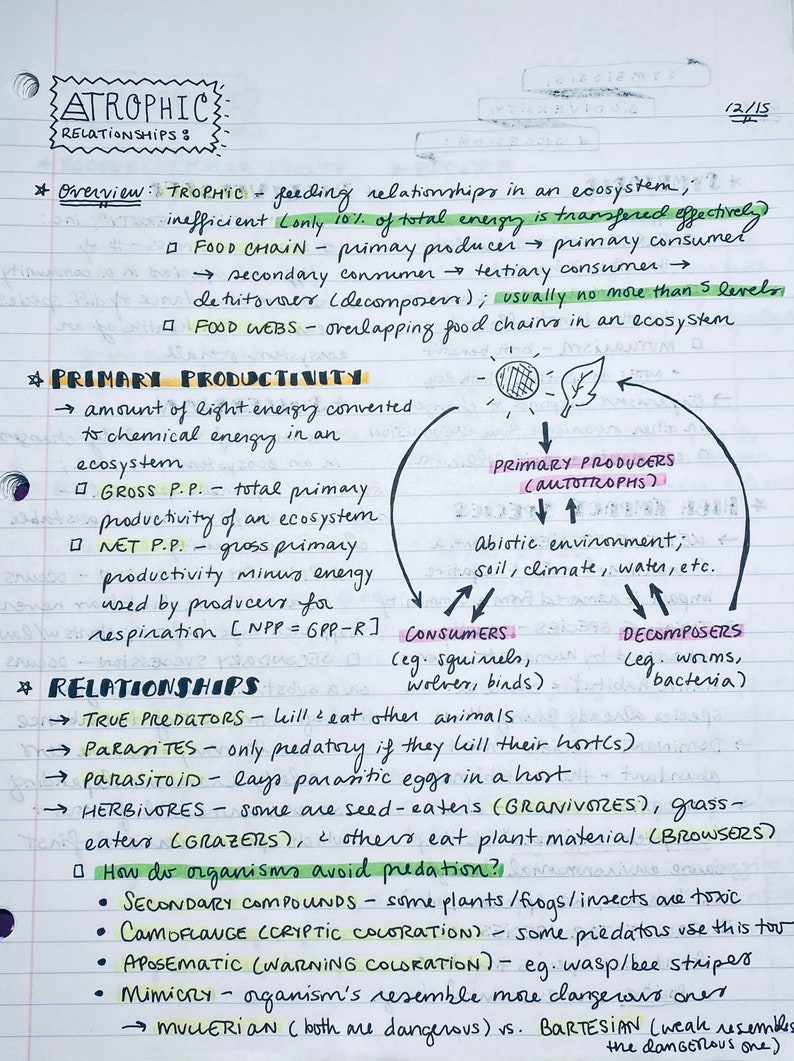 TROPHIC
RELATIONSHIPS:
12/15
Overview: TROPHIC - feeding relationships in an ecosystem;
inefficient (only 10% of total energy is transfered effectively)
FOOD CHAIN - primary producer → primary consumer
→ secondary consumer → tertiary consumer →
detritovores (decomposers); usually no more than 5 levels
FOOD WEBS - overlapping food chains in an ecosystem
PRIMARY PRODUCTIVITY
→ amount of light energy converted
to chemical energy in an
ecosystem
GROSS P.P. - total primary
productivity of an ecosystem
NET P.P. - gross primary
productivity minus energy
used by producers for
respiration [NPP = GPP-R]
PRIMARY PRODUCERS
(AUTOTROPHS)
Abiotic environment;
soil, climate, water, etc.
CONSUMERS
(eg. squirrels,
wolves, birds)
DECOMPOSERS
(eg. worms,
bacteria)
RELATIONSHIPS
→ TRUE PREDATORS - kill & eat other animals
→ PARASITES - only predatory if they kill their host(s)
→ PARASITOID - lays parasitic eggs in a host
→ HERBIVORES - some are seed-eaters (GRANIVORES), grass-
eaters (GRAZERS), & others eat plant material (BROWSERS)
How do organisms avoid predation?
• SECONDARY COMPOUNDS - some plants/frogs/insects are toxic
• CAMOFLAUGE (CRYPTIC COLORATION) - some predators use this too
• APOSEMATIC (WARNING COLORATION) - eg. wasp/bee stripes
• MIMICRY - organism's resemble more dangerous ones
→ MULLERIAN (both are dangerous) vs. BARTESIAN (weak resembles
the dangerous one)